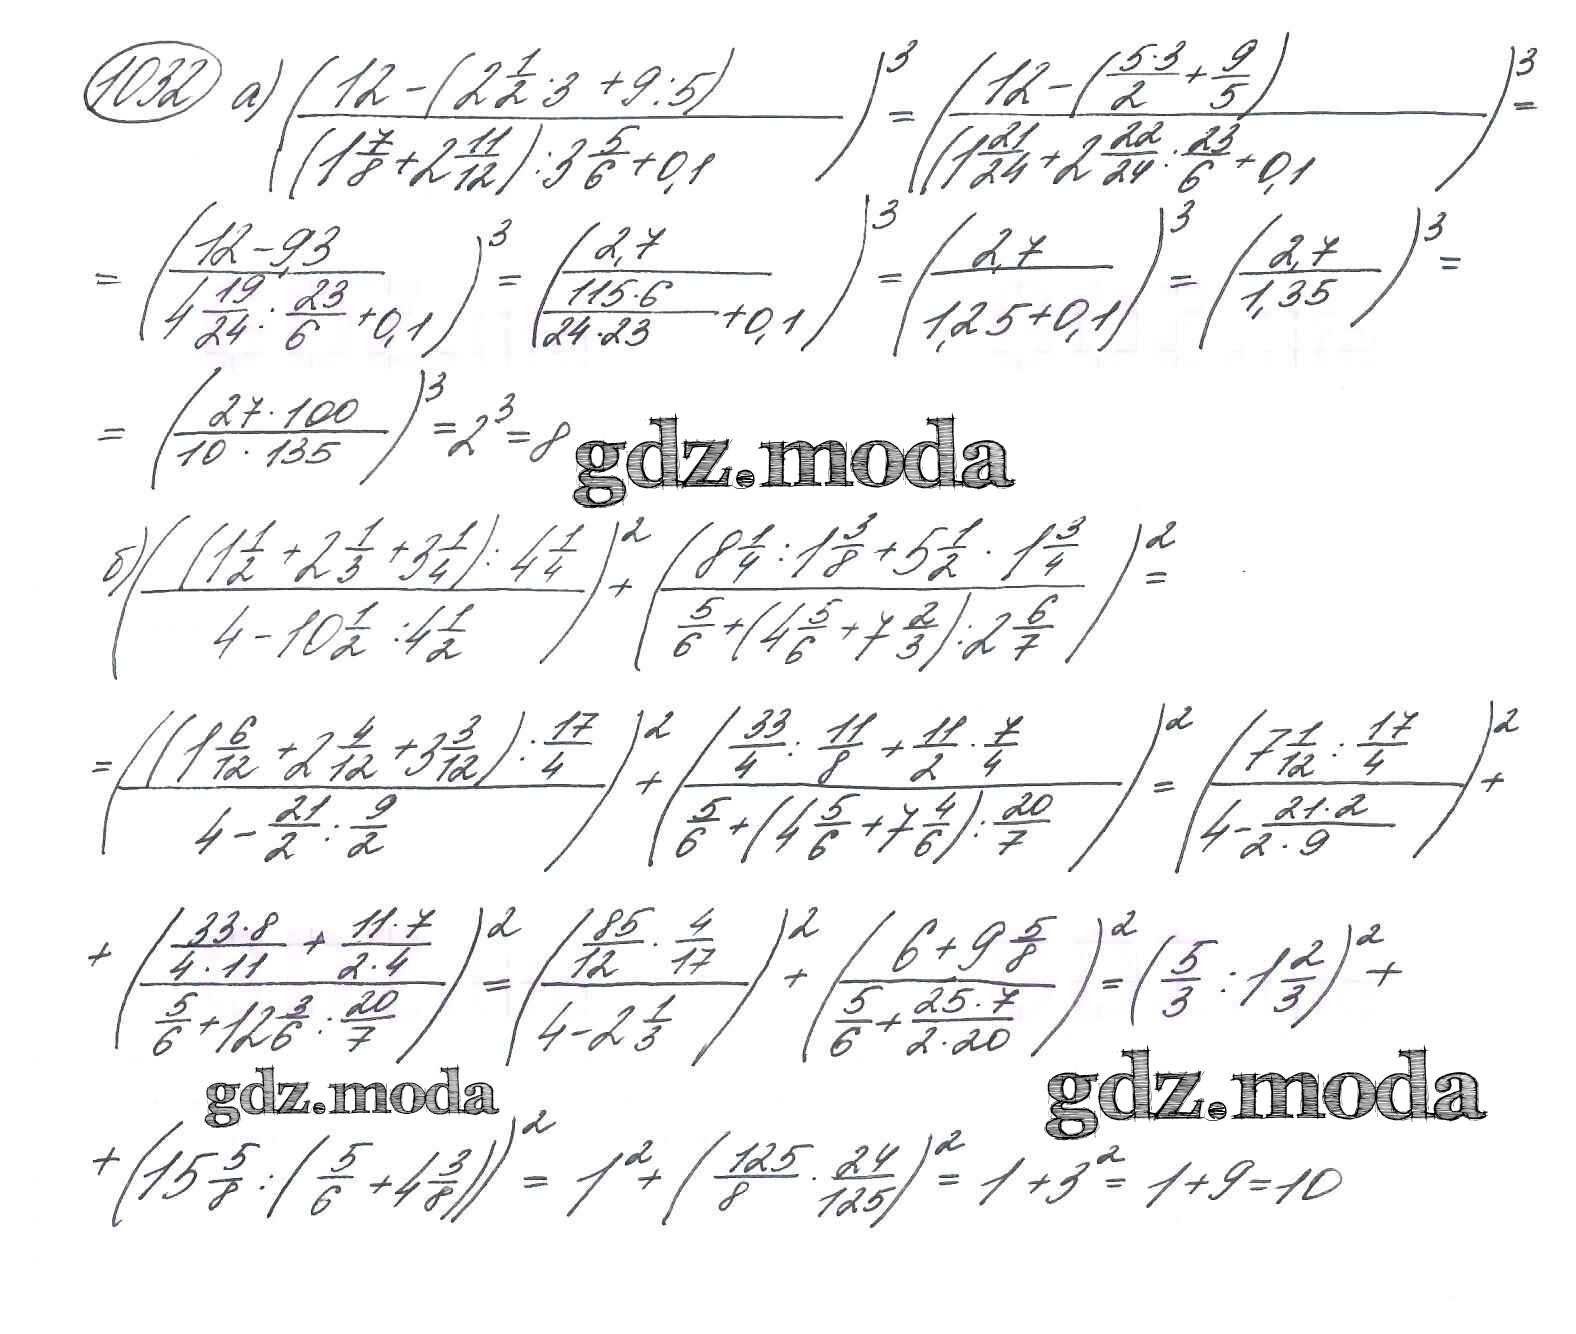 1032 а) ((12 - (2 1/2 · 3 + 9 : 5)) / ((1 7/8 + 2 11/12) : 3 5/6 + 0,1))^3 = ((12 - (5·3/2 + 9/5)) / ((1 21/24 + 2 22/24 : 23/6 + 0,1))^3 =
= ((12 - 9,3) / (4 19/24 : 23/6 + 0,1))^3 = (2,7 / (115·6/24·23 + 0,1))^3 = (2,7 / (1,25 + 0,1))^3 = (2,7 / 1,35)^3 =
= (27·100 / 10·135)^3 = 2^3 = 8
gdz.moda
б) (((1 1/2 + 2 1/3 + 3 1/4) : 4 1/4) / (4 - 10 1/2 : 4 1/2))^2 + ((8 1/4 : 1 3/8 + 5 1/2 · 1 3/4) / (5/6 + (4 5/6 + 7 2/3) : 2 6/7))^2 =
= (((1 6/12 + 2 4/12 + 3 3/12) : 17/4) / (4 - 21/2 : 9/2))^2 + ((33/4 : 11/8 + 11/2 · 7/4) / (5/6 + (4 5/6 + 7 4/6) : 20/7))^2 = ((7 1/12 : 17/4) / (4 - 21·2/2·9))^2 +
+ ((33·8/4·11 + 11·7/2·4) / (5/6 + 12 3/6 : 20/7))^2 = ((85/12 · 4/17) / (4 - 2 1/3))^2 + ((6 + 9 5/8) / (5/6 + 25·7/2·20))^2 = (5/3 : 1 2/3)^2 +
gdz.moda
gdz.moda
+ (15 5/8 : (5/6 + 4 3/8))^2 = 1^2 + (125/8 · 24/125)^2 = 1 + 3^2 = 1 + 9 = 10